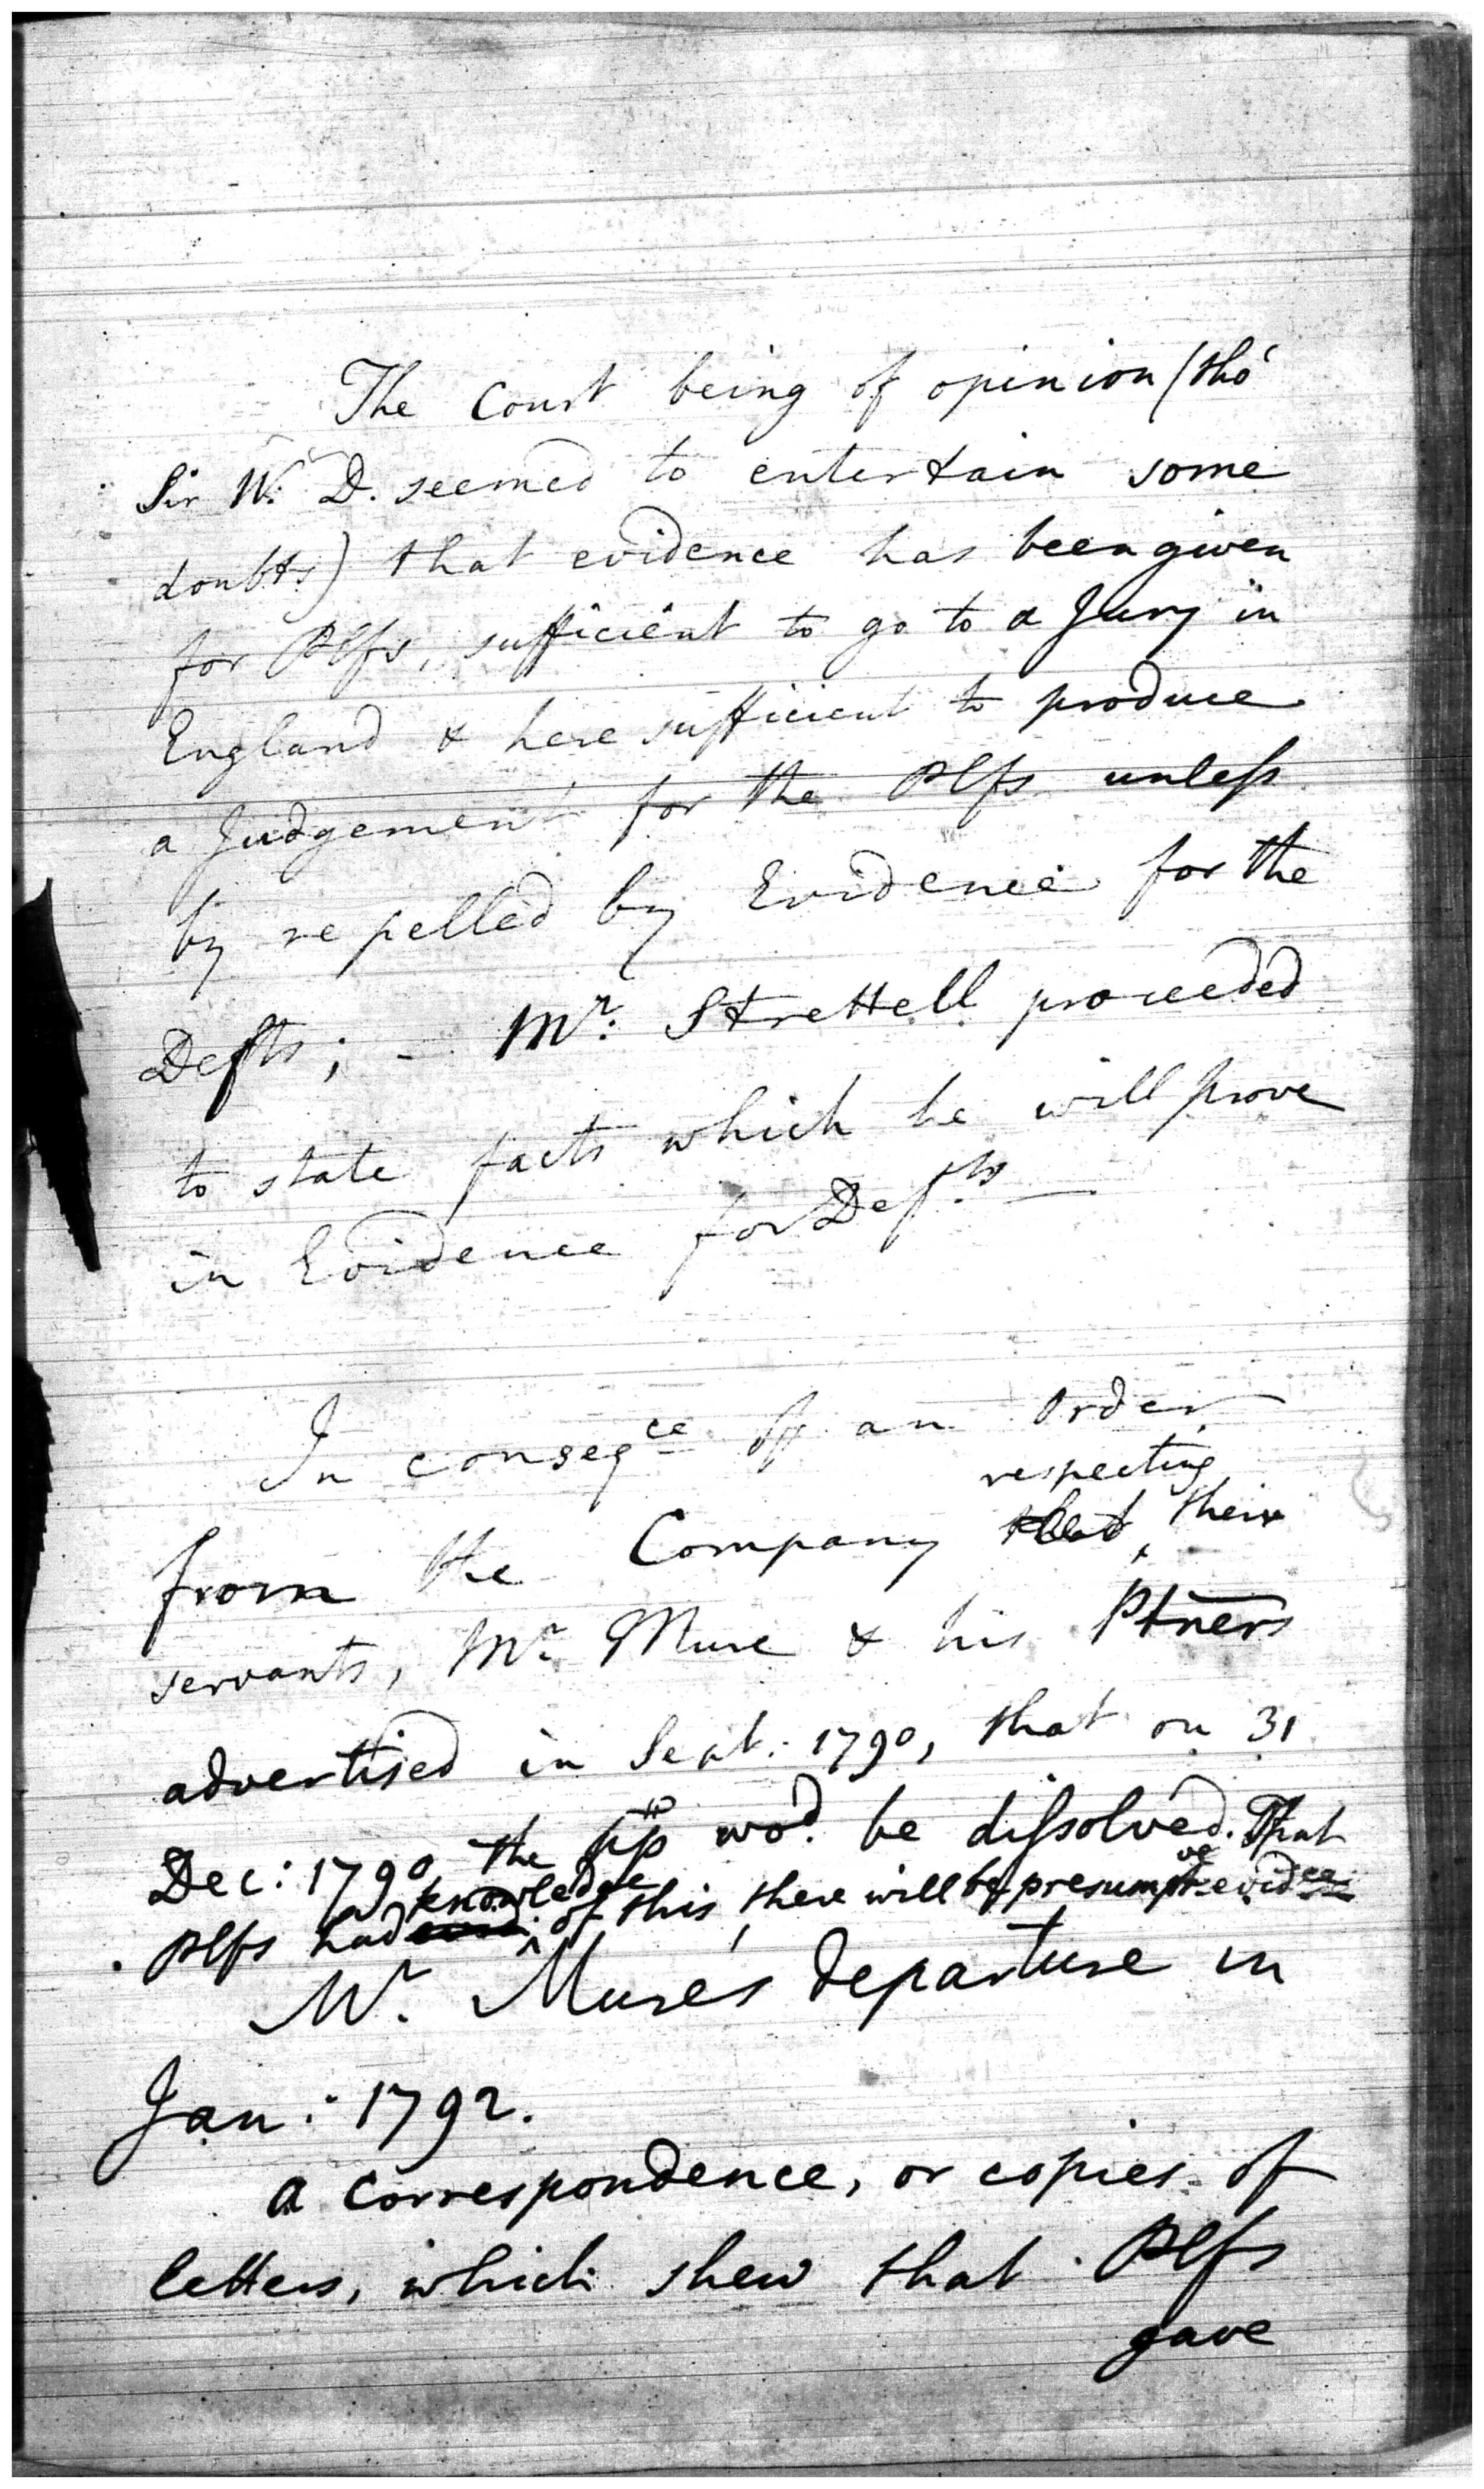 The Court being of opinion (tho'
Sir W. D. seemed to entertain some
doubts) that evidence has been given
for Plfs, sufficient to go to a Jury in
England & here sufficient to produce
a Judgement for the Plfs unless
by repelled by Evidence for the
Defts; - Mr. Strettell proceeded
to state facts which he will prove
in Evidence for Defts —
In conseqce of an Order
respecting
from the Company that their
servants, Mr Mure & his Ptners
advertised in Sept: 1790, that on 31
Dec: 1790 the wod. be dissolved. That
knowledge ve
Plfs had of this, there will be presumpt evidce
Mr. Mure's departure in
Jan: 1792.
a correspondence, or copies of
letters, which shew that Plfs
gave